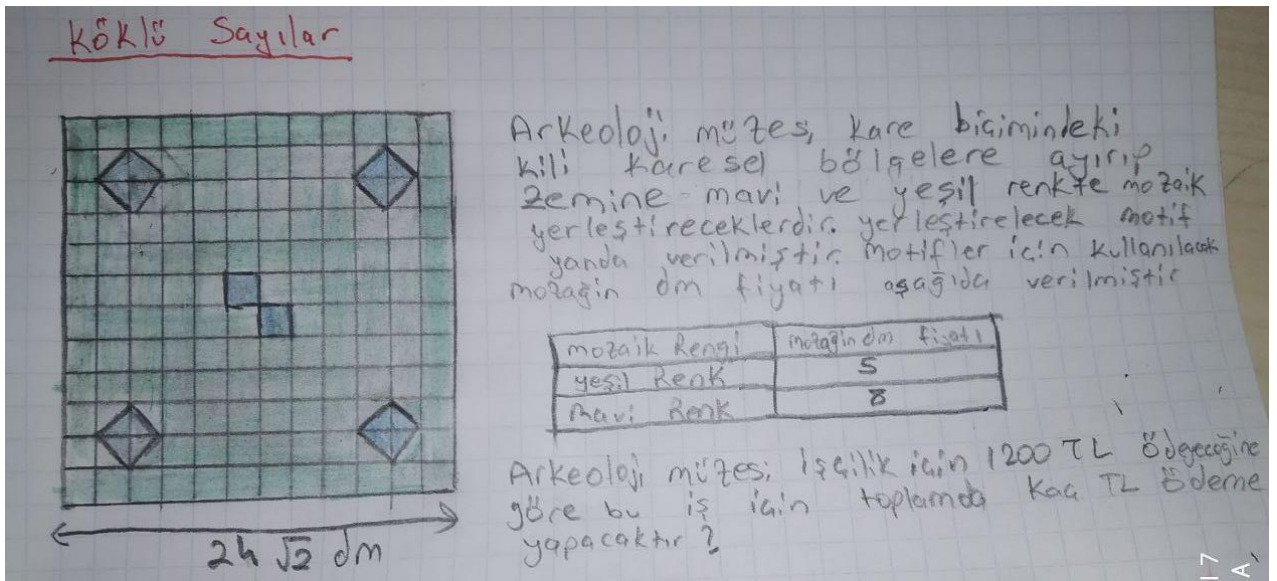 Köklü Sayılar
Arkeoloji müzesi kare biçimindeki
kili karesel bölgelere ayırıp
zemine mavi ve yeşil renkte mozaik
yerleştireceklerdir. yerleştirelecek motif
yanda verilmiştir. motifler için kullanılacak
mozağin dm fiyatı aşağıda verilmiştir
mozaik Rengi mozağin dm fiyatı
yeşil Renk 5
mavi Renk 8
Arkeoloji müzesi işçilik için 1200 TL ödeyeceğine
göre bu iş için toplamda kaç TL ödeme
yapacaktır?
24 √2 dm
17
A